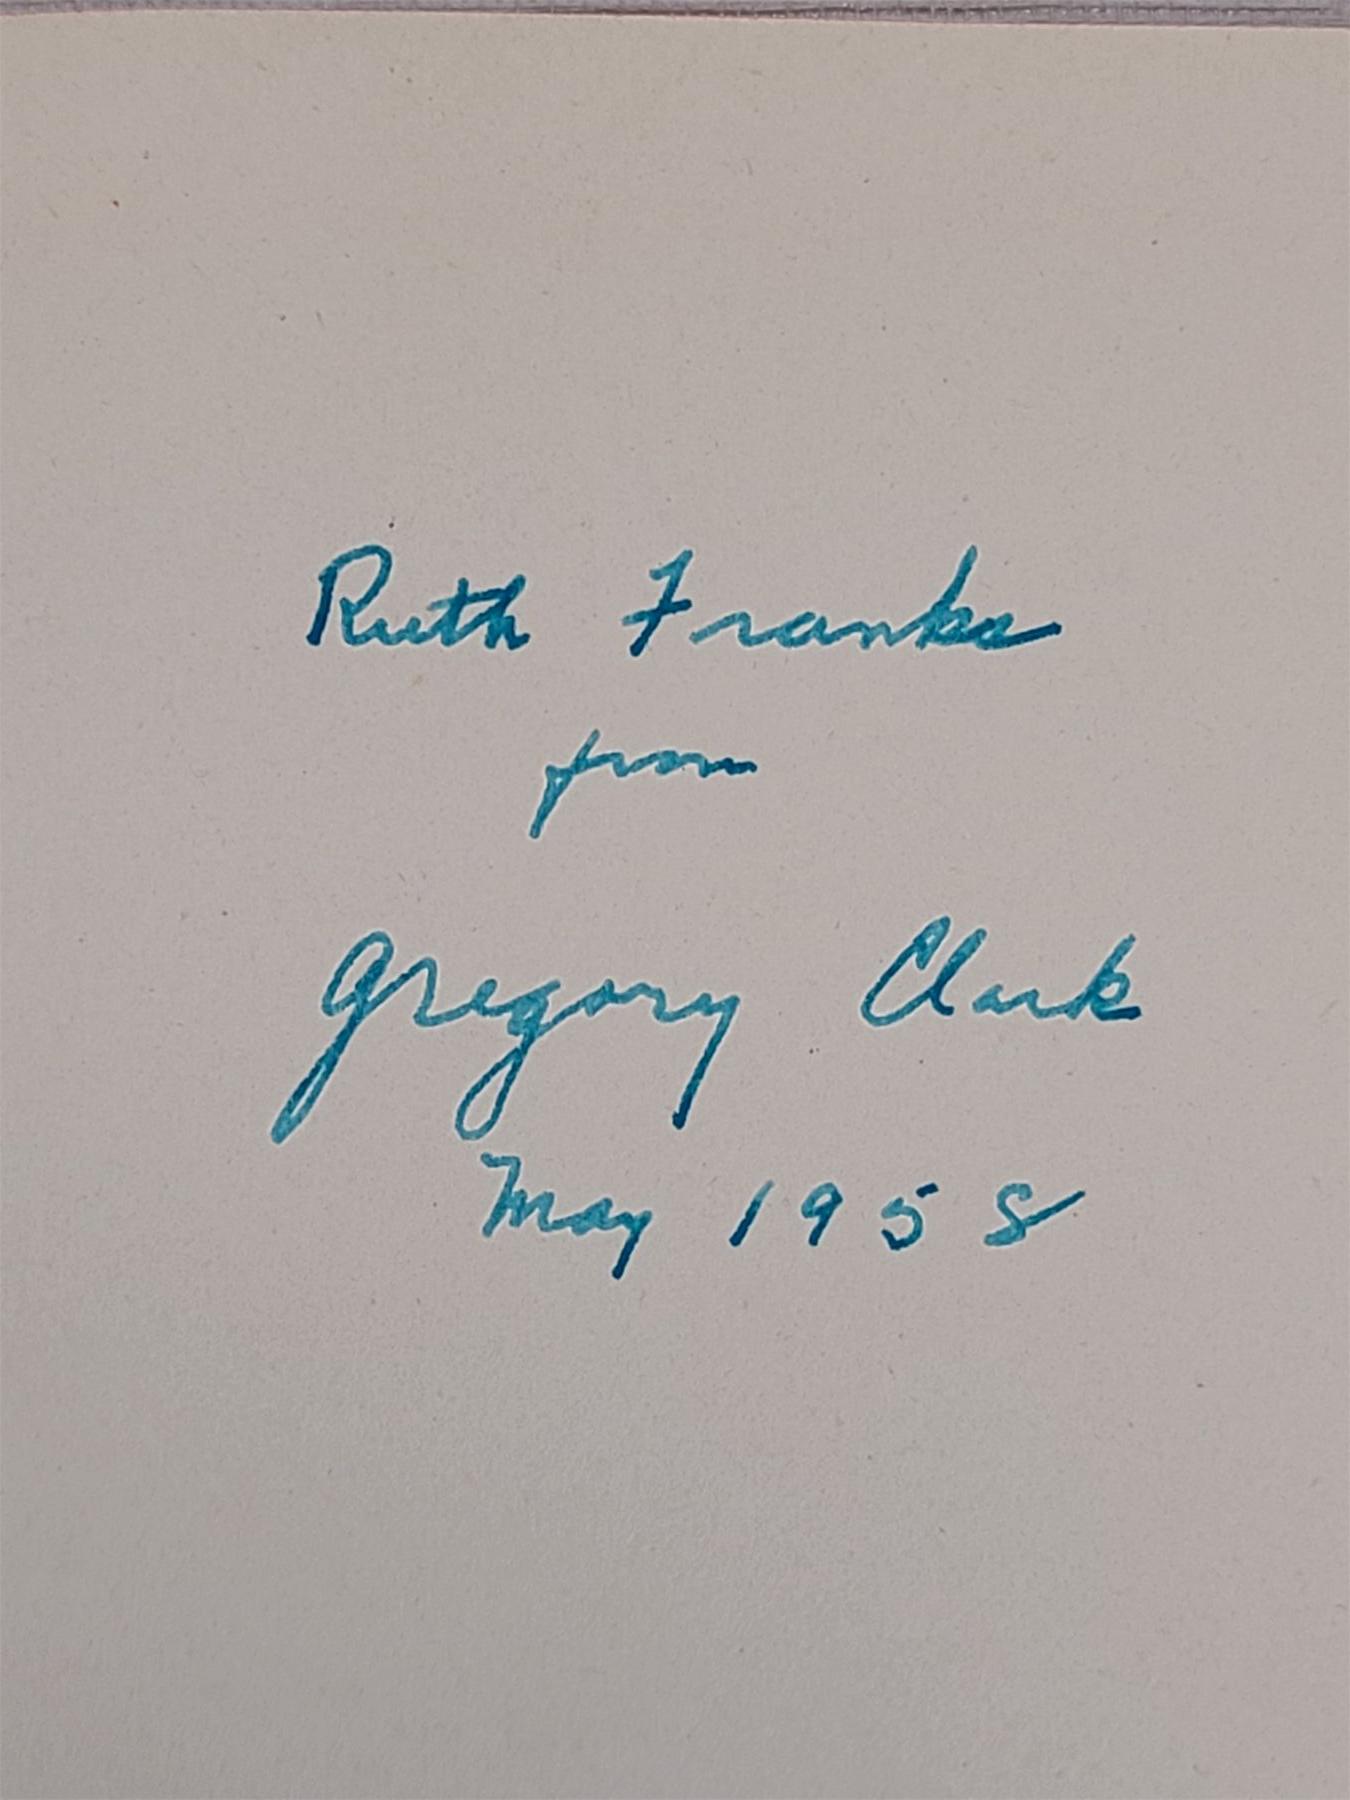 Ruth Franks
from
Gregory Clark
May 1958